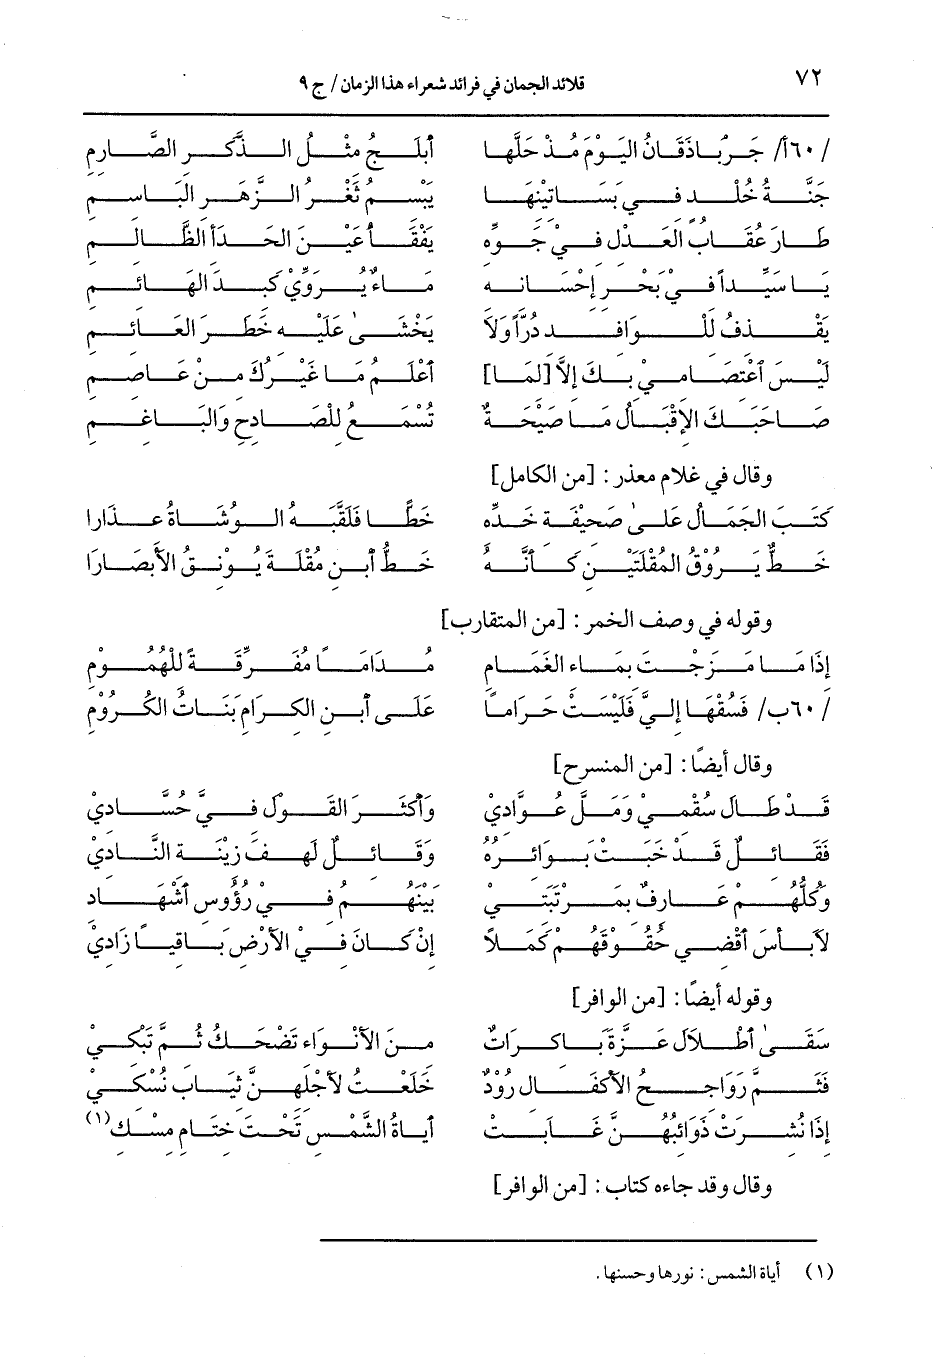 ٧٢ قلائد الجمان في فرائد شعراء هذا الزمان/ ج ٩
/٦٠أ/ جَرْبَاذَقَانُ اليَوْمَ مُذْ حَلَّهَا أَبْلَجُ مثْلُ الذَّكَرِ الصَّارِمِ
جَنَّةُ خُلْدٍ فِي بَسَاتِيْنِهَا يَبْسِمُ ثَغْرُ الزَّهَرِ البَاسِمِ
طَارَ عُقَابُ العَدْلِ فِيْ جَوِّهِ يَفْقَأُ عَيْنَ الحَدَأِ الظَّالِمِ
يَا سَيِّداً فِيْ بَحْرِ إِحْسَانِهِ مَاءٌ يُرَوِّيْ كَبِدَ الهَائِمِ
يَقْذِفُ لِلْوَافِدِ دُرّاً وَلاَ يَخْشَىٰ عَلَيْهِ خَطَرَ العَائِمِ
لَيْسَ ٱعْتِصَامِيْ بِكَ إِلاَّ [لِمَا] أَعْلَمُ مَا غَيْرُكَ مِنْ عَاصِمِ
صَاحَبَكَ الإِقْبَالُ مَا صَيْحَةٌ تُسْمَعُ لِلْصَادِحِ وَالبَاغِمِ
وقال في غلام معذر: [من الكامل]
كَتَبَ الجَمَالُ عَلَىٰ صَحِيْفَةِ خَدِّهِ خَطَّا فَلَقَّبَهُ الوُشَاةُ عِذَارا
خَطٌّ يَرُوْقُ المُقْلَتَيْنِ كَأَنَّهُ خَطُّ أَبْنِ مُقْلَةَ يُوْنِقُ الأَبْصَارَا
وقوله في وصف الخمر: [من المتقارب]
إِذَا مَا مَزَجْتَ بِمَاءِ الغَمَامِ مُدَامَاً مُفَرِّقَةً لِلْهُمُوْمِ
/٦٠ب/ فَسُقْهَا إِلِيَّ فَلَيْسَتْ حَرَاماً عَلَى أَبْنِ الكِرَامِ بَنَاتُ الكُرُوْمِ
وقال أيضًا: [من المنسرح]
قَدْ طَالَ سُقْمِيْ وَمَلَّ عُوَّادِيْ وَأَكْثَرَ القَوْلَ فِيَّ حُسَّادِيْ
فَقَائِلٌ قَدْ خَبَتْ بَوَائِرُهُ وَقَائِلٌ لَهِفَ زِيْنَةِ النَّادِيْ
وَكُلُّهُمْ عَارِفٌ بِمَرْتَبَتِيْ بَيْنَهُمُ فِيْ رُؤُوسِ أَشْهَادِ
لاَ بَأْسَ أَقْضِي حُقُوْقَهُمْ كَمَلاً إِنْ كَانَ فِيْ الأَرْضِ بَاقِياً زَادِيْ
وقوله أيضًا: [من الوافر]
سَقَىٰ أَطْلاَلَ عَزَّةَ بَاكِرَاتٌ مِنَ الأَنْوَاءِ تَضْحَكُ ثُمَّ تَبْكِيْ
فَثَمَّ رَوَاجِحُ الأَكْفَالِ رُوْدٌ خَلَعْتُ لأَجْلِهِنَّ ثِيَابَ نُسْكِيْ
إِذَا نُشِرَتْ ذَوَائِبُهُنَّ غَابَتْ أَيَاةُ الشَّمْسِ تَحْتَ خِتَامِ مِسْكِ(١)
وقال وقد جاءه كتاب: [من الوافر]
(١) أياة الشمس: نورها وحسنها.